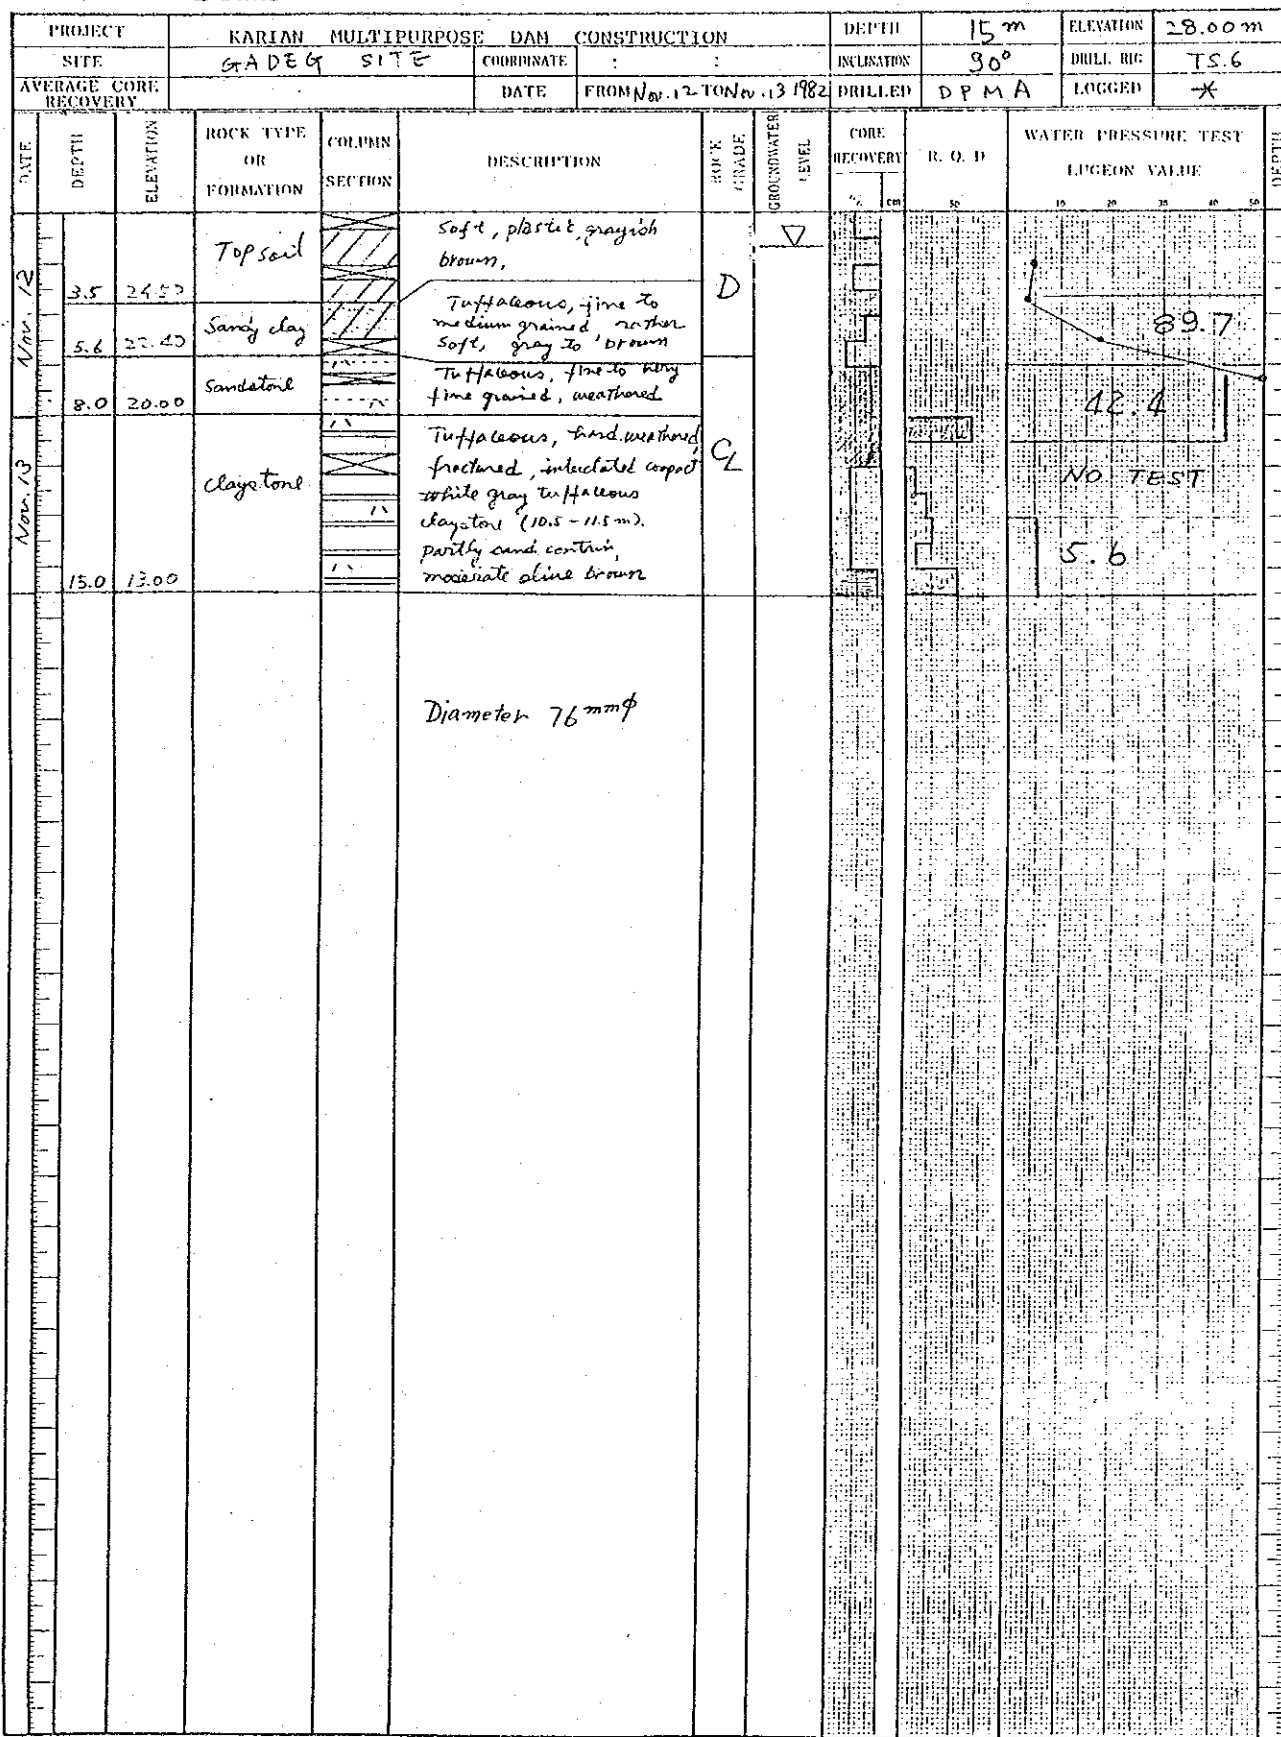 PROJECT KARIAN MULTIPURPOSE DAM CONSTRUCTION DEPTH 15 m ELEVATION 28.00 m
SITE GADEG SITE COORDINATE : : INCLINATION 90° DRILL RIG TS.6
AVERAGE CORE RECOVERY DATE FROM Nov. 12 TO Nov. 13 1982 DRILLED DPMA LOGGED
DATE DEPTH ELEVATION ROCK TYPE OR FORMATION COLUMN SECTION DESCRIPTION ROCK GRADE GROUNDWATER LEVEL CORE RECOVERY R. Q. D WATER PRESSURE TEST LUGEON VALUE DEPTH
% cm 50 10 20 30 40 50
Nov. 12
Top soil
Soft, plastic, grayish
brown,
3.5 24.50
D
Sandy clay
Tuffaceous, fine to
medium grained rather
soft, gray to brown
5.6 22.40
89.7
Sandstone
Tuffaceous, fine to very
fine grained, weathered
8.0 20.00
42.4
Nov. 13
Claystone
Tuffaceous, hard weathered
fractured, compact
white gray tuffaceous
claystone (10.5 - 11.5 m).
partly sand
moderate olive brown
CL
NO TEST
5.6
15.0 13.00
Diameter 76 mmφ